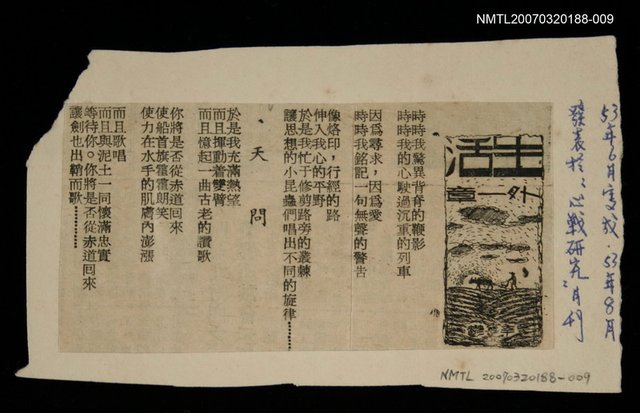 NMTL20070320188-009
53年6月完成.53年8月
發表於:心戰研究:月刊
生活
外一章
時時我驚異背脊的鞭影
時時我的心駛過沉重的列車
因爲尋求，因爲愛
時時我銘記一句無聲的警告
像烙印，行經的路
伸入我心的平野
於是我忙于修剪路旁的叢棘
讓思想的小昆蟲們唱出不同的旋律…………
天問
於是我充滿熱望
而且揮動着雙臂
而且憶起一曲古老的讚歌
你將是否從赤道回來
使船首旗霍霍朗笑
使力在水手的肌膚內澎漲
而且歌唱
而且與泥土一同懷滿忠實
等待你。你將是否從赤道回來
讓劍也出鞘而歌…………
NMTL 20070320188-009